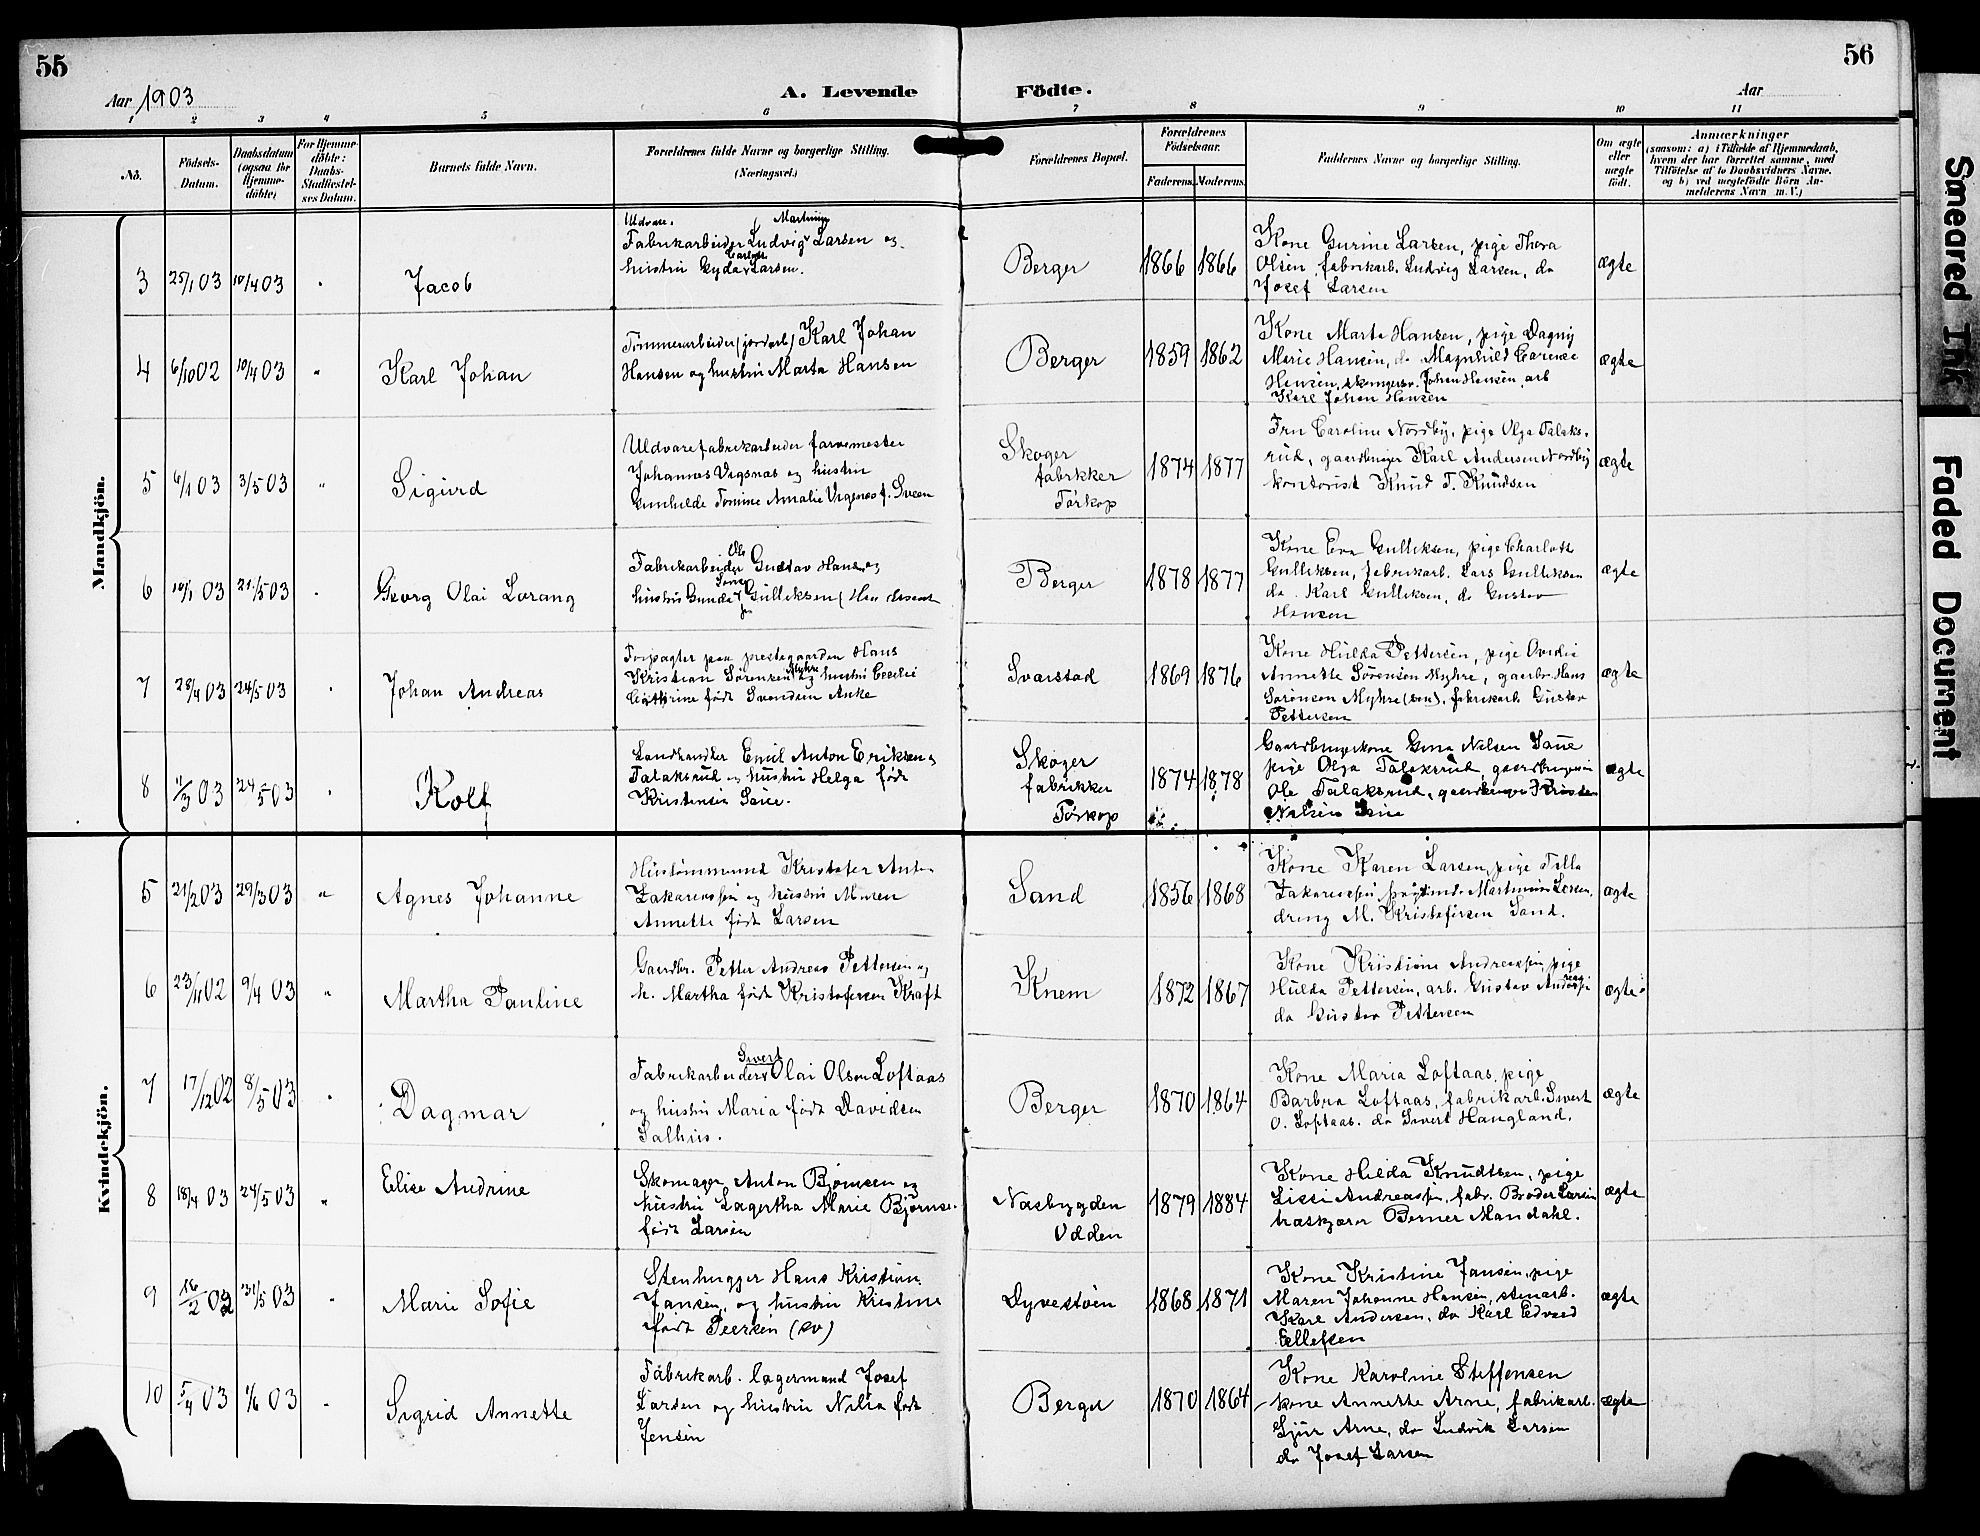 55
56
Aar 1903
A. Levende
Födte.
Aar
1 2 3 4 5 6 7 8 9 10 11
No.
Födsels-
Datum.
Daabsdatum
(ogsaa for
Hjemme-
döbte)
For Hjemme-
döbte:
Daabs-
Stadfæstel-
ses Datum.
Barnets fulde Navn.
Forældrenes fulde Navne og borgerlige Stilling.
(Næringsvei.)
Forældrenes Bopæl.
Forældrenes
Födselsaar.
Faderens. Moderens.
Faddernes Navne og borgerlige Stilling.
Om ægte
eller
uægte
födt.
Anmærkninger
(saasom: a) i Tilfælde af Hjemmedaab,
hvem der har forrettet samme, med
Tilföielse af to Daabsvidners Navne.
og b) ved uægtefödte Börn An-
melderens Navn m. V.)
Mandkjön.
3 25/1 03 10/4 03 "
Jacob
Uldvare. Martinius
Fabrikarbeider Ludvig Larsen og
hustru Gyda Larsen.
Berger
1866 1866
Kone Gurine Larsen, pige Thora
Olsen, fabrikarb. Ludvig Larsen, do
Josef Larsen
ægte
4 6/10 02 10/4 03 "
Karl Johan
Tømmerarbeider (jordarb) Karl Johan
Hansen og hustru Marta Hansen
Berger
1859 1862
Kone Marta Hansen, pige Dagny
Marie Hansen, do Magnhild
Hansen, Johan Hansen, arb
Karl Johan Hansen
ægte
5 6/1 03 3/5 03 "
Sigurd
Uldvarefabrikarbeider farvemester
Johannes Vegsnæs og hustru
Gunhilde Tomine Amalie Vegsnæs f. Sveen
Skoger
fabrikker
Tørkop
1874 1877
Fru Caroline Nordby, pige Olga Talaks-
rud, gaardbruger Karl Andersen Nordby
kontorist Knud T. Knudsen
ægte
6 10/1 03 21/5 03 "
Georg Olai Lorang
Ole
Fabrikarbeider Gustav Hansen og
hustru Gunda Gulliksen
Berger
1878 1877
Kone Eva Gulliksen, pige Charlotte
Gulliksen, fabrikarb. Lars Gulliksen
do. Karl Gulliksen, do Gustav
Hansen
ægte
7 29/4 03 24/5 03 "
Johan Andreas
Forpagter paa prestegaarden Hans
Kristian Sørensen Myhre og hustru Cecilie
Cathrine født Svendsen Anke
Svarstad
1869 1876
Kone Hulda Pettersen, pige Ovidie
Annette Sørensen Myhre, gaardbr. Hans
Sørensen Myhre (søn), fabrikarb. Gustav
Pettersen
ægte
8 11/3 03 24/5 03 "
Rolf
Landhandler Emil Anton Eriksen
Talaksrud og hustru Helga født
Kristensen Saue.
Skoger
fabrikker
Tørkop
1874 1878
Gaardbrugerkone Gina Nelsen Saue
pige Olga Talaksrud, gaardbruger
Ole Talaksrud, gaardbruger Kristen
Nelsen Saue
ægte
Kvindekjön.
5 21/2 03 29/3 03 "
Agnes Johanne
Hustømmermd Kristofer Anton
Zakariassen og hustru Maren
Annette født Larsen
Sand
1856 1868
Kone Karen Larsen, pige Tilla
Zakariassen, Martinius Larsen,
dreng M. Kristofersen Sand.
ægte
6 23/11 02 9/4 03 "
Martha Pauline
Gaardbr. Petter Andreas Pettersen og
h. Martha født Kristofersen Kraft
Knem
1872 1867
Kone Kristiane Andreassen, pige
Hulda Pettersen, arb. Gustav Andreassen
do Gustav Pettersen
ægte
7 17/12 02 8/5 03 "
Dagmar
Sivert
Fabrikarbeider Olai Olsen Loftaas
og hustru Maria født Davidsen
Salhus.
Berger
1870 1864
Kone Maria Loftaas, pige
Barbra Loftaas, fabrikarb. Sivert
O. Loftaas. do Sivert Haugland.
ægte
8 18/4 03 24/5 03 "
Elise Andrine
Skomager Anton Bjørnsen og
hustru Lagertha Marie Bjørnse-
født Larsen
Næsbygden
Odden
1879 1884
Kone Hilda Knudtsen, pige
Lissi Andreassen, fabr. Broder Larsen
træskjærer Berner Mandahl.
ægte
9 16/2 02 31/5 03 "
Marie Sofie
Stenhugger Hans Kristian
Jansen, og hustru Kristine
født Peersen (sv)
Dyvestøen
1868 1871
Kone Kristine Jansen, pige
Maren Johanne Hansen, stenarb.
Karl Andersen, do Karl Edvard
Ellefsen
ægte
10 5/4 03 1/6 03 "
Sigrid Annette
Fabrikarb. lagermand Josef
Larsen og hustru Nilia født
Jensen
Berger
1870 1864
Kone Karoline Steffensen
kone Annette Arne, fabrikarb.
Sjur Arne, do Ludvik Larsen
do Josef Larsen
ægte
Smeared Ink
Faded Document